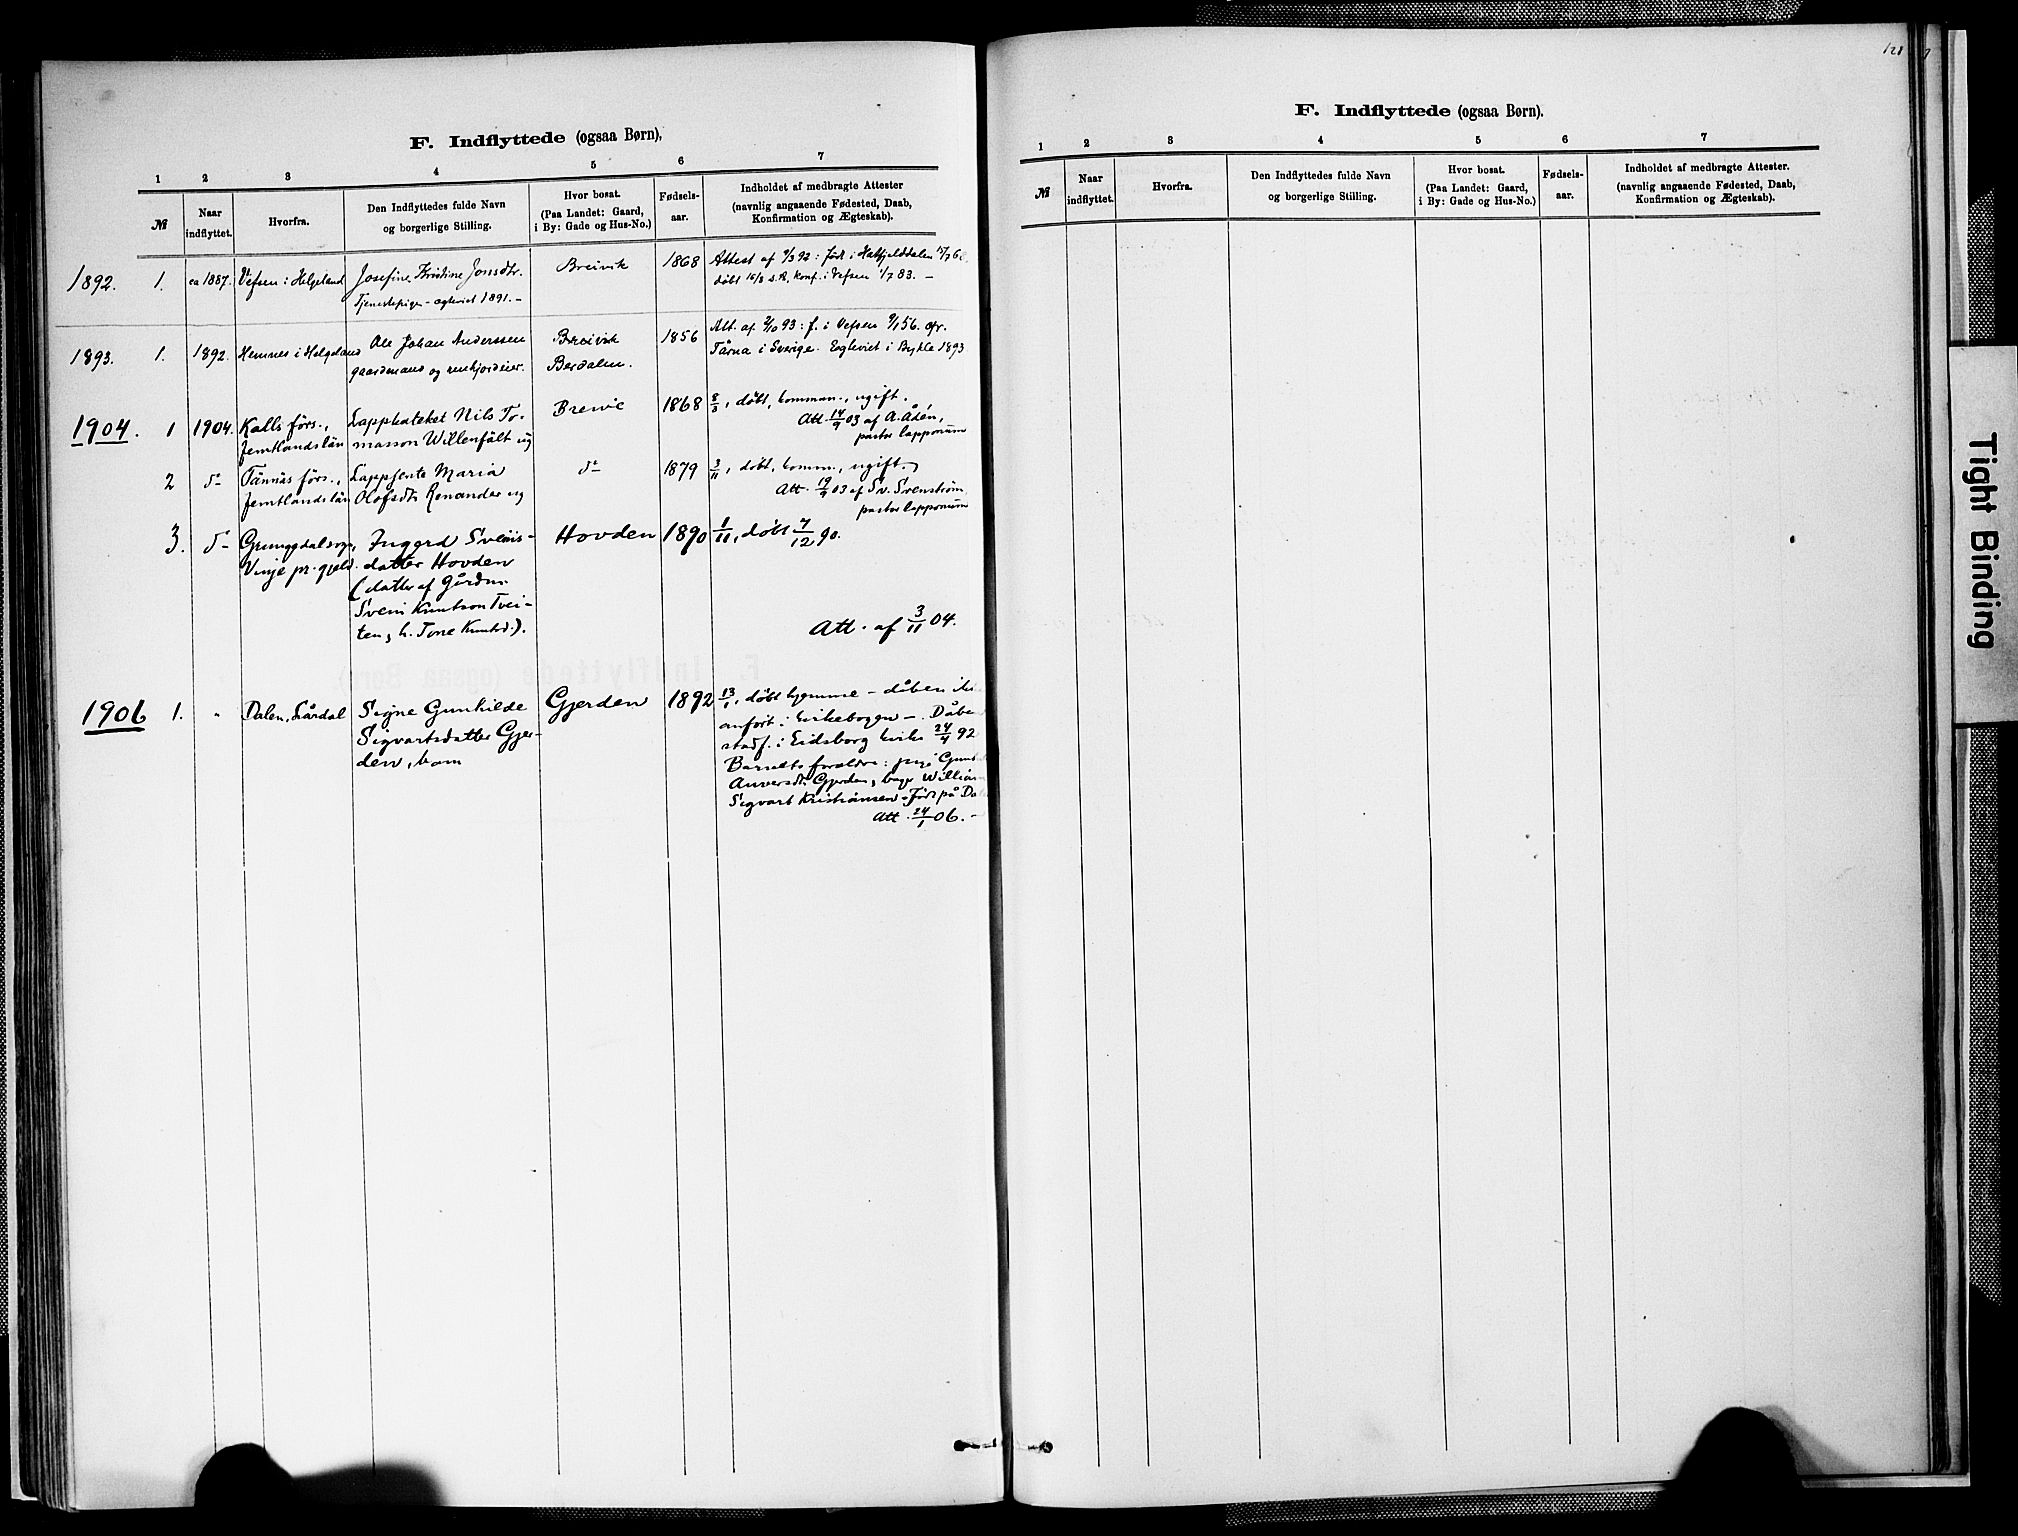 F. Indflyttede (ogsaa Børn).
1 2 3 4 5 6 7
№ Naar indflyttet. Hvorfra. Den Indflyttedes fulde Navn og borgerlige Stilling. Hvor bosat. (Paa Landet: Gaard, i By: Gade og Hus-No.) Fødsels-aar. Indholdet af medbragte Attester (navnlig angaaende Fødested, Daab, Konfirmation og Ægteskab).
1892. 1. ca 1887. Vefsen i Helgeland Josefine Kristine Jonsdtr. Breivik 1868 Attest af 9/3 92: født i Hatfjelddalen
Tjenestepige - egteviet 1891. - døbt 16/8 s.A, konf. i Vefsen 1/7 83. -
1893. 1. 1892. Hemnes i Helgeland Ole Johan Anderssen Breivik 1856 Att. af 2/10 93: f. i Vefsen 9/1 56.
gaardmand og renhjordeier. Berdalen. Tårna i Sverige. Egteviet i Bykle 1893
1904. 1 1904. Kalls förs., Lappkateket Nils To- Breivic 1868 8/3, døbt, kommun., ugift.
Jemtlandslän masson Willenfält ug Att. 14/9 03 af A. Ådén,
pastor lapponum
2 do Tännäs förs., Lappjente Maria do 1879 3/11, døbt, komm., ugift.
Jemtlandslän Olofsdtr Renander ug Att. 19/9 03 af Sv. Svenström
pastor lapponum
3. do Grunggdal sogn, Ingerd Sveins- Hovden 1890 1/11, døbt 7/12 90.
Vinje pr.gjeld. datter Hovden
(datter af Gårdm.
Svein Knutson Tvei-
ten, h. Tone Knutsd.). Att. af 3/11 04.
1906 1. " Dalen, Lårdal Signe Gunhilde Gjerden 1892 13/1, døbt hjemme - dåben ik
Sigvartsdatter Gjer- anført i kirkebogen -. Dåbe
den, barn stadf. i Eidsborg kirke 24/4 92
Barnets forældre: pige Gun
Anversdtr Gjerden, bage William
Sigvart Kristiansen - Født på Da
Att. 24/1 06. -
121
F. Indflyttede (ogsaa Børn).
1 2 3 4 5 6 7
№ Naar indflyttet. Hvorfra. Den Indflyttedes fulde Navn og borgerlige Stilling. Hvor bosat. (Paa Landet: Gaard, i By: Gade og Hus-No.) Fødsels-aar. Indholdet af medbragte Attester. (navnlig angaaende Fødested, Daab, Konfirmation og Ægteskab).
Tight Binding